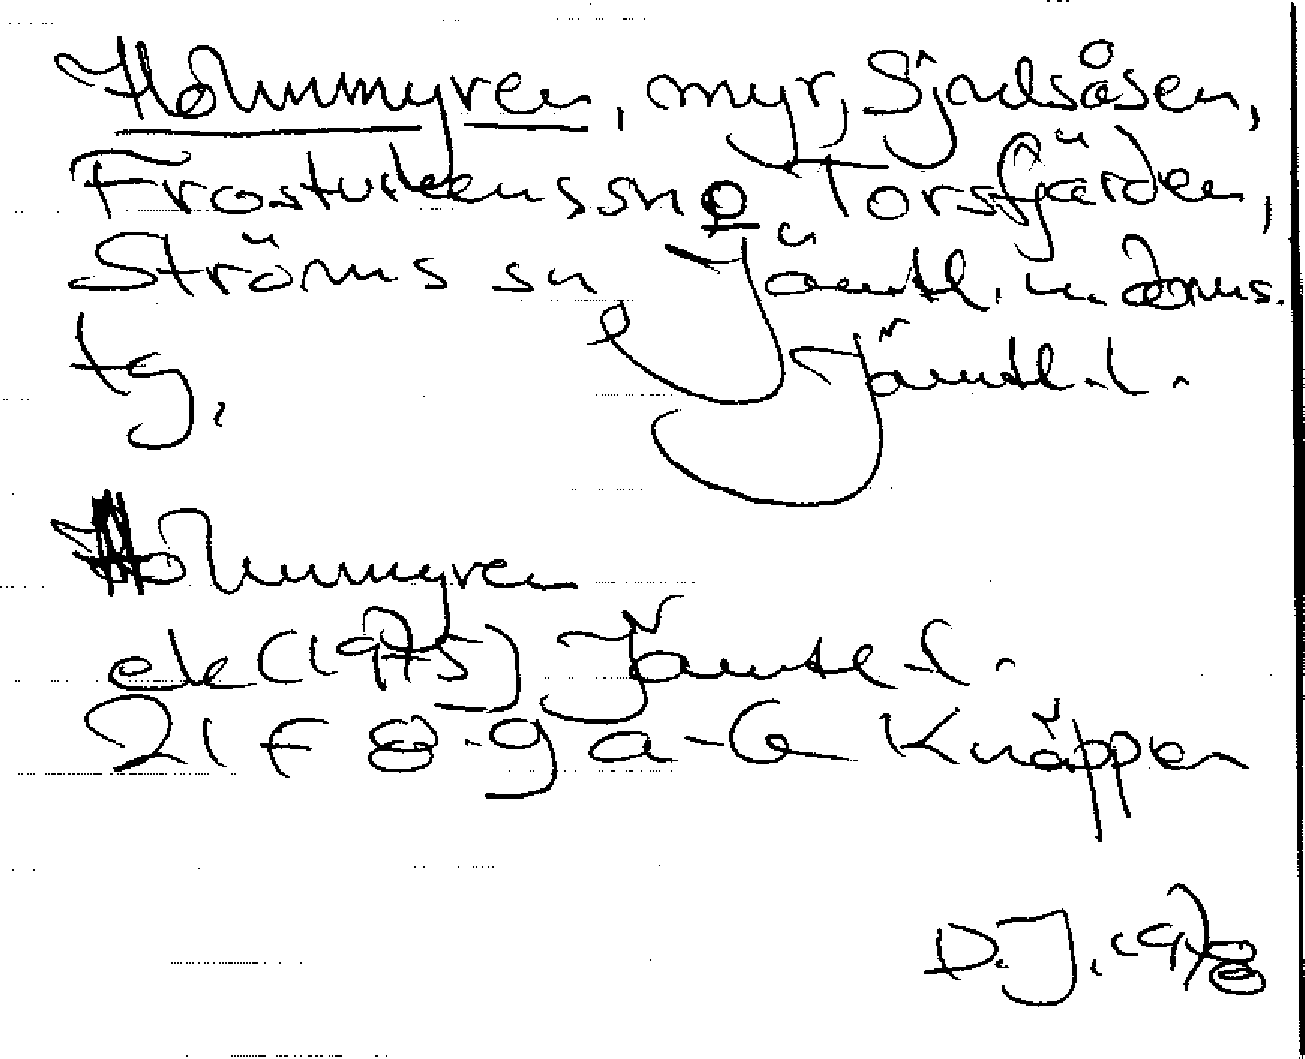 Holmmyren, myr, Sjulsåsen,
Frostvikens sn o Torsfjärden,
Ströms sn Jämtl. n. doms.
tg. Jämtl. l.
Holmmyren
ek (1975) Jämtl l.
21 F 8-9 a-b Knäppen
D.J. 1978